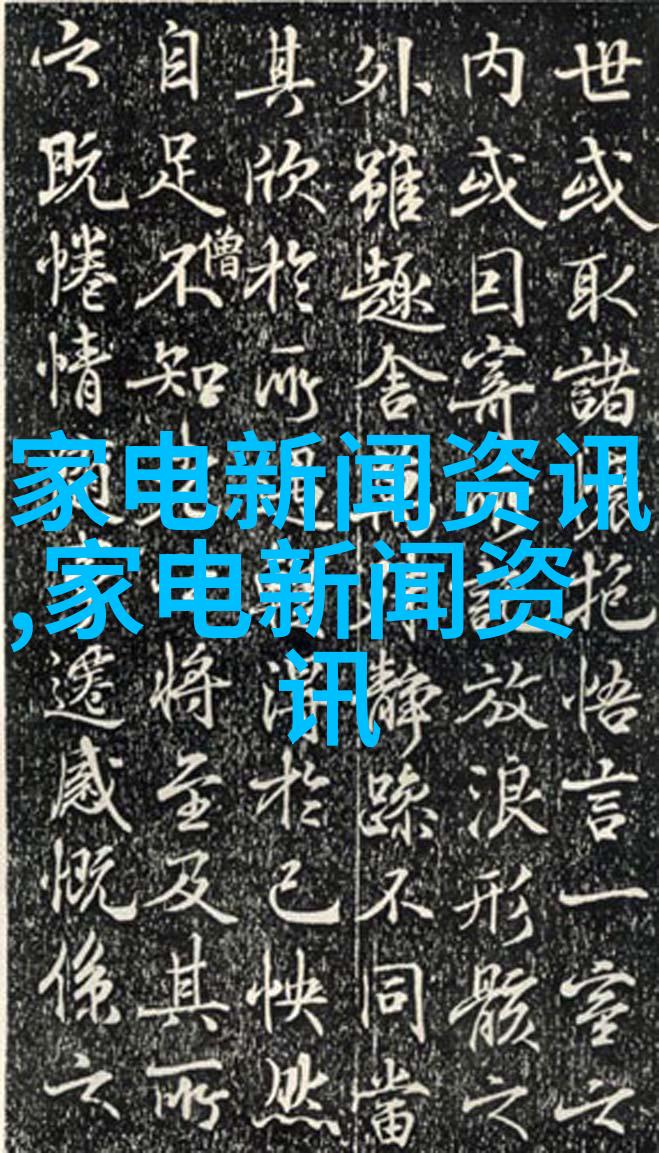 世或取諸抱悟言一室之
内或因寄放浪形骸之
外雖趣舍静躁不同當
其欣於所於己怏然
自足不知將至及其所
僧
之既惓情遷感慨係之
家电新闻资讯
,家电新闻资
讯